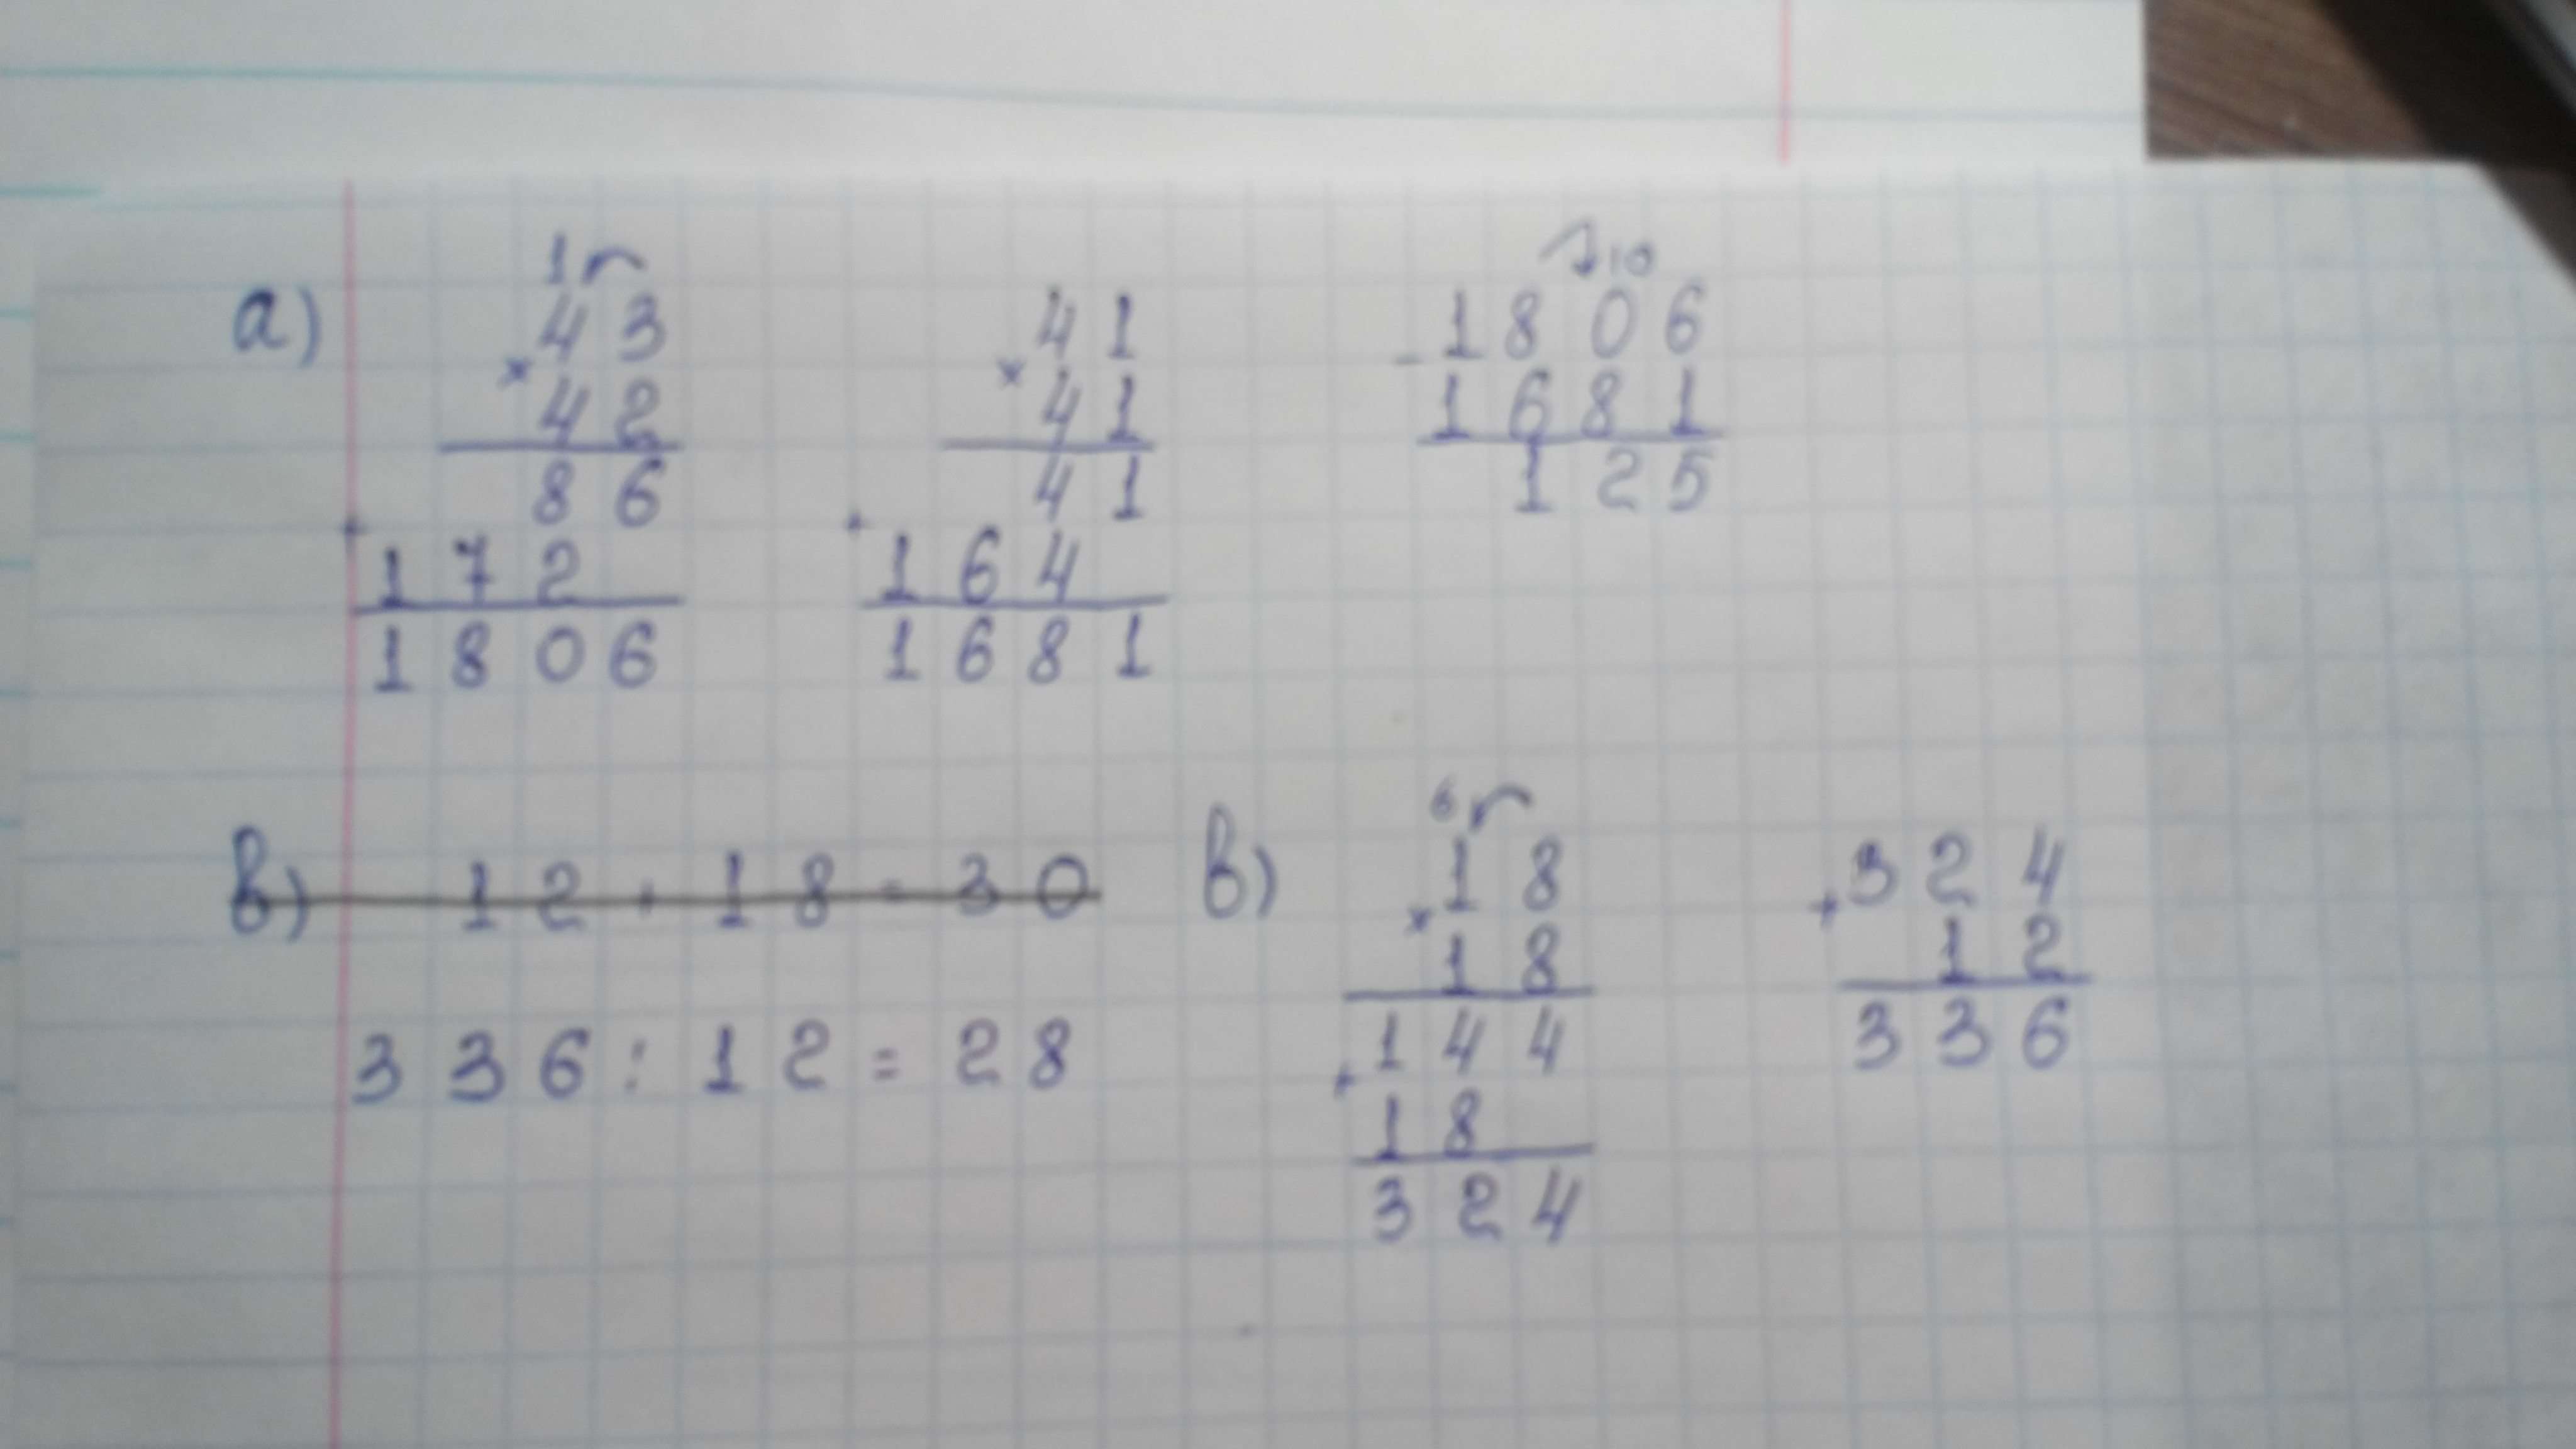 а)
1
43
× 42
86
+ 172
1806
41
× 41
41
+ 164
1681
10
- 1806
1681
125
в) 12 + 18 = 30
336 : 12 = 28
в)
6
18
× 18
144
+ 18
324
+ 324
12
336